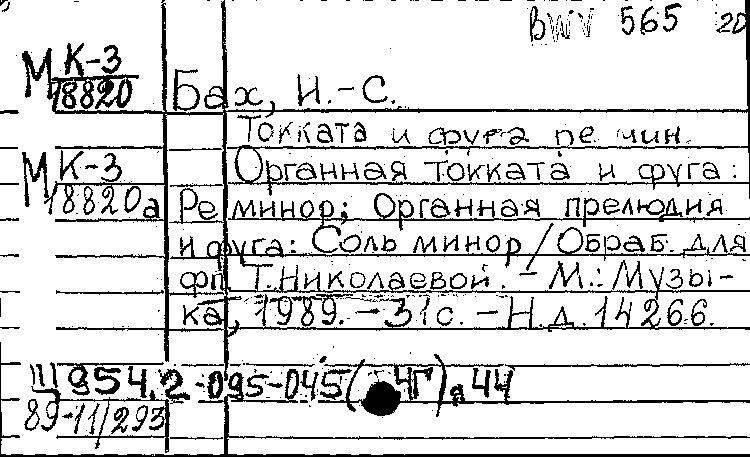 BWV 565 20
М К-3
18820
Бах, И.-С.
Токката и фуга ре мин.
М К-3
18820а
Органная токката и фуга:
Ре минор; Органная прелюдия
и фуга: Соль минор / Обраб. для
фп. Т. Николаевой. - М.: Музы-
ка, 1989. - 31 с. - Н.д. 14266.
Щ 954.2-095-045( 4Г)я44
89-11/293